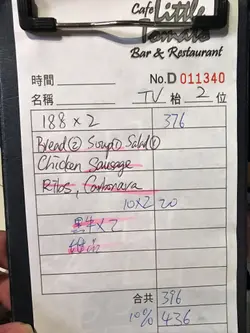 Cafe Little
Tomato
Bar & Restaurant
時間 No. D 011340
名稱 TV 枱 2 位
188 × 2 376
Bread② Soup① Salad①
Chicken Sausage
Ribs, Carbonara
10×2 20
黑牛 × 2
合共 396
10% 436